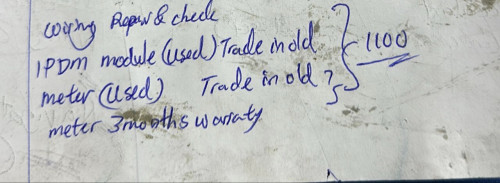 wiring Repair & check
IPDM module (used) Trade in old
meter (used) Trade in old
meter 3 months warraty
1100